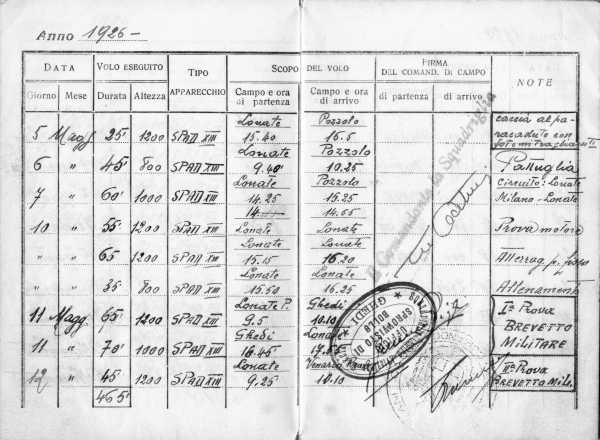 Anno 1926-
DATA VOLO ESEGUITO TIPO APPARECCHIO SCOPO DEL VOLO FIRMA DEL COMAND. DI CAMPO NOTE
Giorno Mese Durata Altezza Campo e ora di partenza Campo e ora di arrivo di partenza di arrivo
Lonate Pozzolo caccia al pa-
5 Magg. 25' 1200 SPAD XIII 15.40 16.5 racadute con
Lonate Pozzolo fotomitragliatrice
6 " 45' 800 SPAD XIII 9.40 10.25 Pattuglia
Lonate Pozzolo Circuito: Lonate
7 " 60' 1000 SPAD XIII 14.25 15.25 Milano - Lonate
14. 14.55
10 " 55' 1200 SPAD XIII Lonate Lonate Prova motore
Lonate Lonate
" " 65' 1200 SPAD XIII 15.15 16.20 Atterrag. p.
Lonate Lonate
" " 35' 800 SPAD XIII 15.50 16.25 Allenamento
Lonate P. Ghedi Iª Prova
11 Magg. 65' 1200 SPAD XIII 9.5 10.10 BREVETTO
Ghedi Lonate MILITARE
11 " 70' 1000 SPAD XIII 16.45
Lonate Venaria IIª Prova
12 " 45' 1200 SPAD XIII 9.25 10.10 BREVETTO Mil.
465'
Il Comandante la Squadriglia
GHEDI